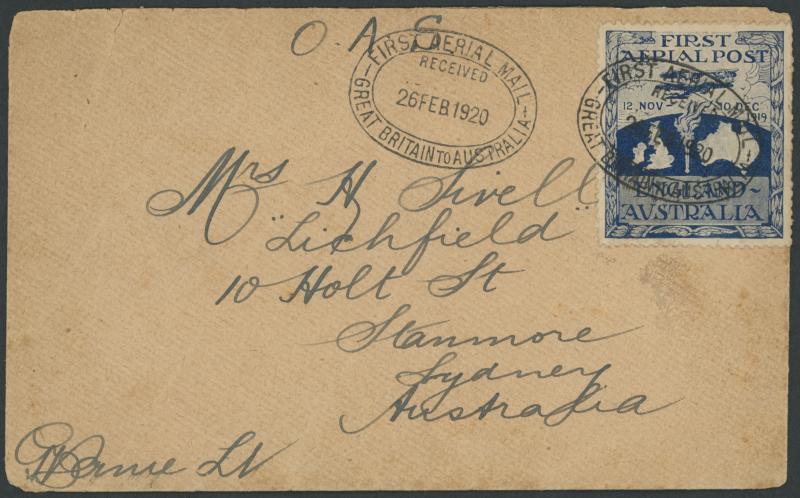 O. A. S.
FIRST AERIAL MAIL
RECEIVED
26 FEB 1920
GREAT BRITAIN TO AUSTRALIA
FIRST
AERIAL POST
12, NOV 10 DEC
1919
ENGLAND
AUSTRALIA
FIRST AERIAL MAIL
RECEIVED
26 FEB 1920
GREAT BRITAIN TO AUSTRALIA
Mrs H Sivell
"Lichfield"
10 Holt St
Stanmore
Sydney
Australia
Lt